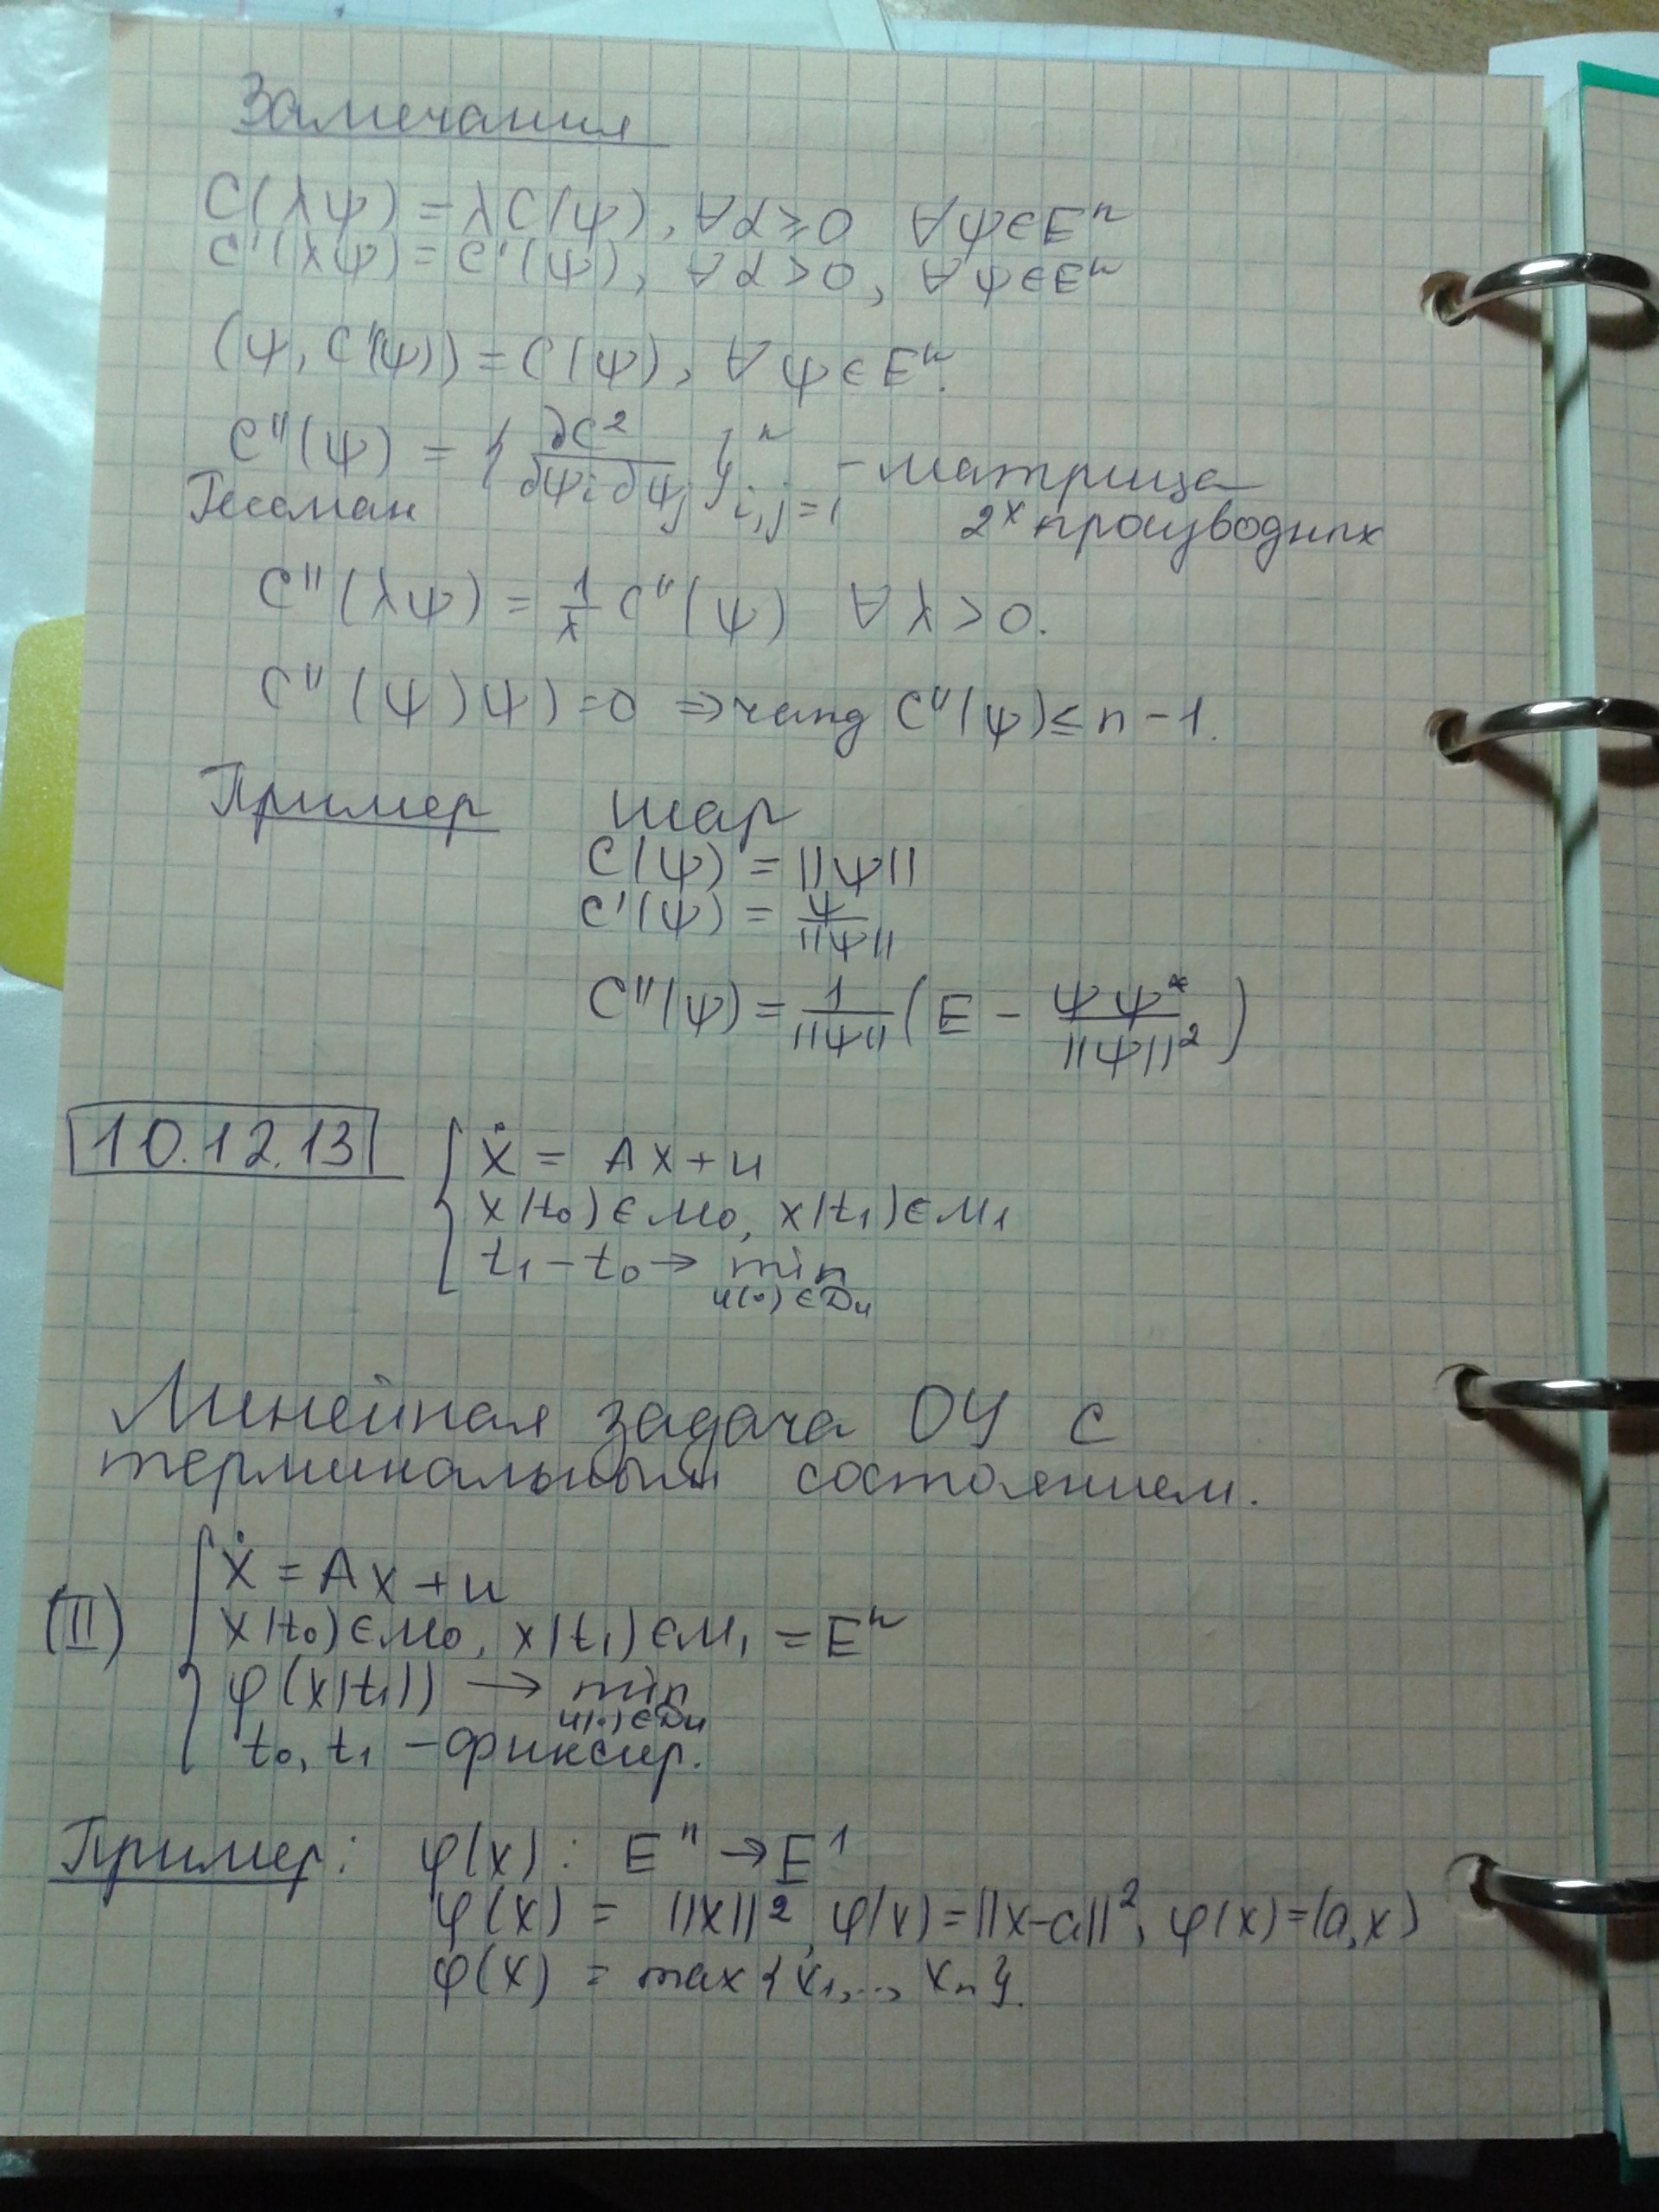 Замечания
C(λψ) = λC(ψ), ∀λ ≥ 0 ∀ψ∈Eⁿ
C'(λψ) = C'(ψ), ∀λ > 0, ∀ψ∈Eⁿ
(ψ, C'(ψ)) = C(ψ), ∀ψ∈Eⁿ.
C''(ψ) = {∂C²/∂ψi∂ψj}ⁿ i,j=1 – матрица
Гессиан 2ˣ производных
C''(λψ) = 1/λ C''(ψ) ∀λ > 0.
C''(ψ)ψ) = 0 ⇒ rang C''(ψ) ≤ n - 1.
Пример шар
C(ψ) = ||ψ||
C'(ψ) = ψ/||ψ||
C''(ψ) = 1/||ψ|| (E - ψψ*/||ψ||²)
10.12.13 { ẋ = Ax + u
x(t₀) ∈ M₀, x(t₁) ∈ M₁
t₁ - t₀ → min
u(·) ∈ Du
Линейная задача ОУ с
терминальным состоянием.
{ ẋ = Ax + u
(II) x(t₀) ∈ M₀, x(t₁) ∈ M₁ = Eⁿ
φ(x(t₁)) → min
u(·) ∈ Du
t₀, t₁ – фиксир.
Пример: φ(x): Eⁿ → E¹
φ(x) = ||x||², φ(x) = ||x-a||², φ(x) = (a,x)
φ(x) = max{x₁,.., xn}.